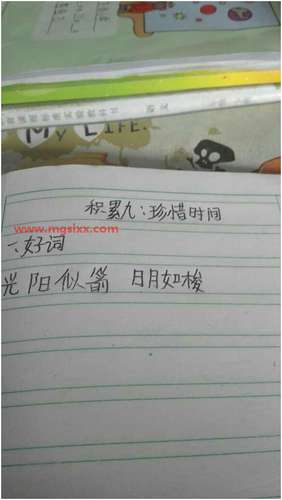 MY LIFE.
积累九：珍惜时间
www.mgsixx.com
一、好词
光阳似箭 日月如梭